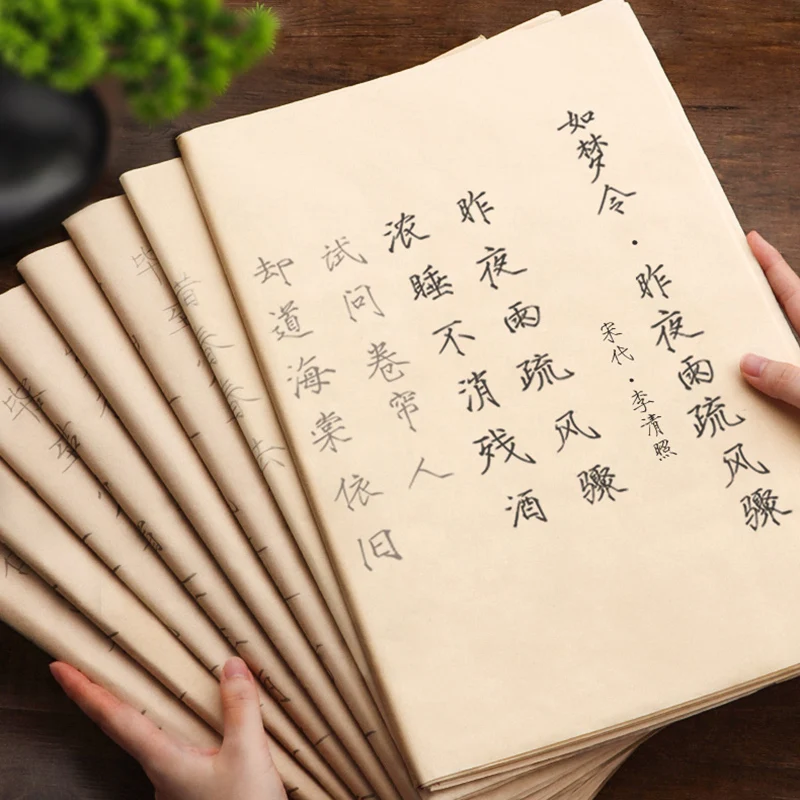 如梦令·昨夜雨疏风骤
宋代·李清照
昨夜雨疏风骤
浓睡不消残酒
试问卷帘人
却道海棠依旧